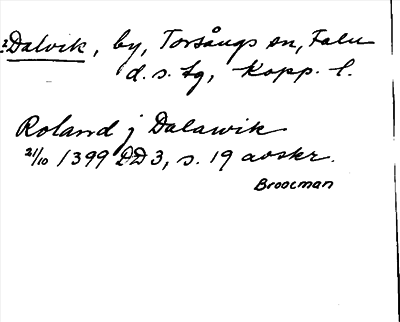 2 Dalvik, by, Torsångs sn, Falu
d. s. tg, Kopp. l.
Roland j Dalawik
21/10 1399 DD 3, s. 19 avskr.
Broocman